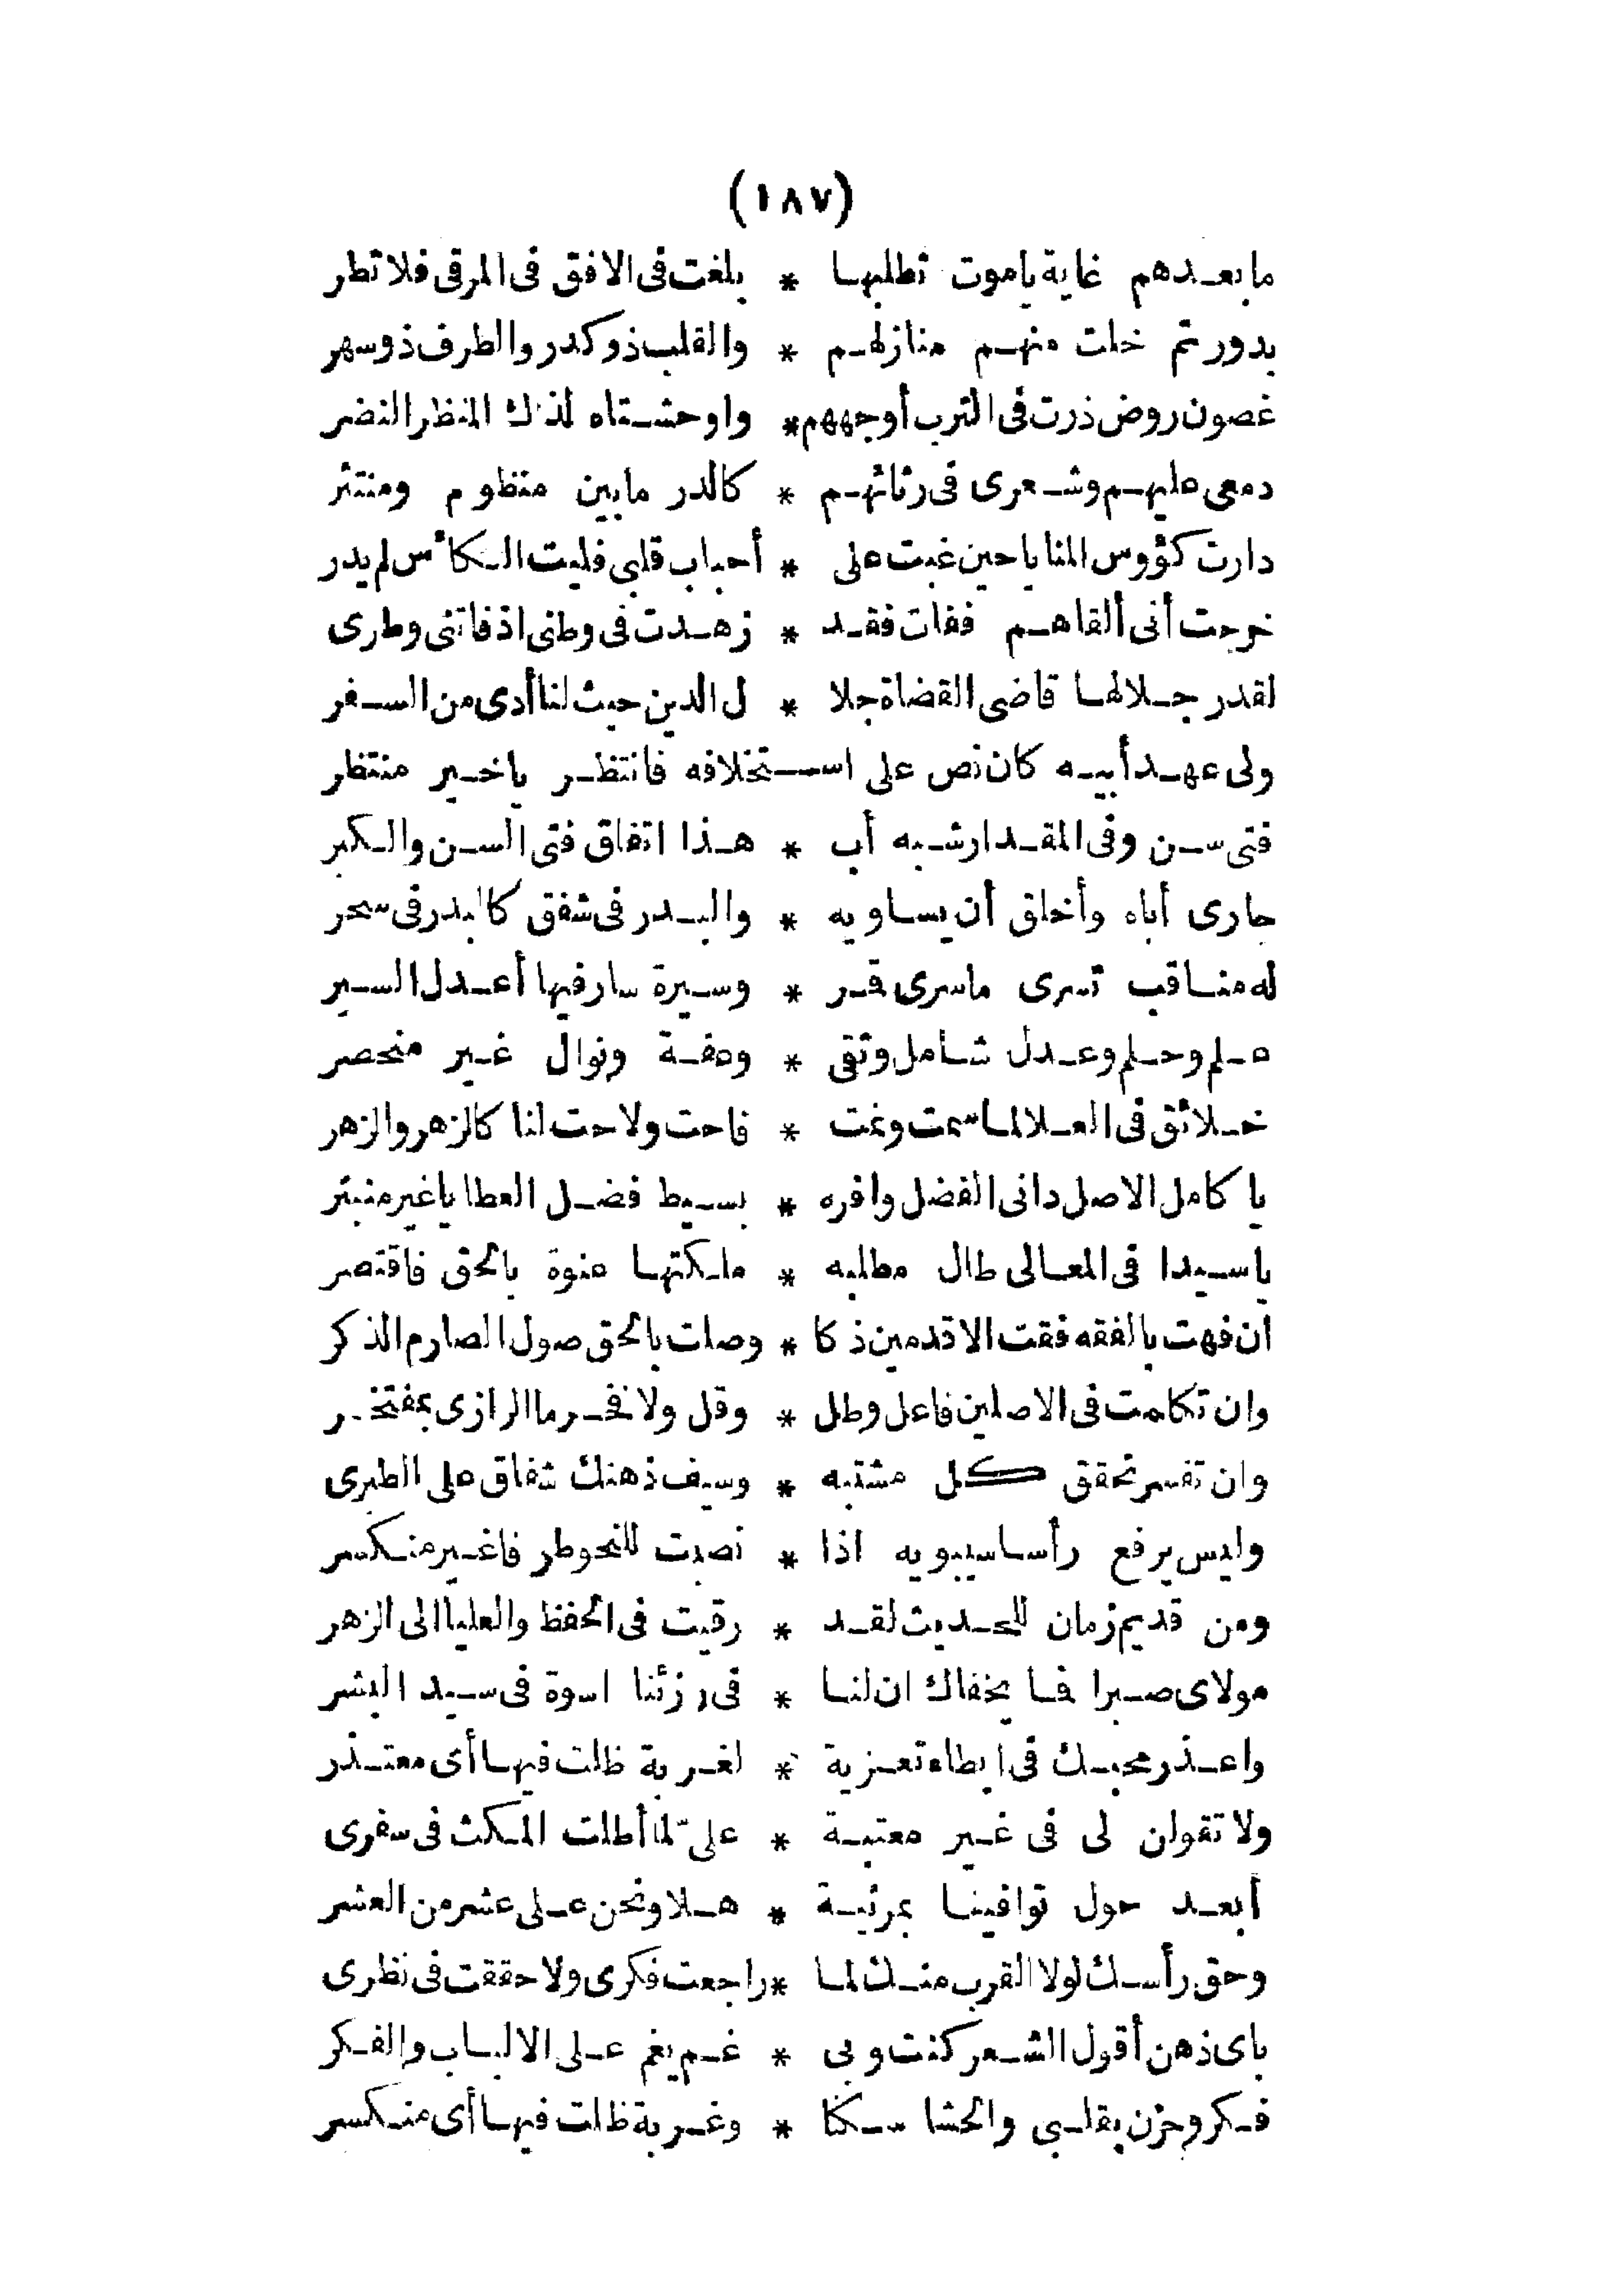 (١٨٧)
ما بعدهم غاية ياموت تطلبها * بلغت فى الافق فى المرقى فلا تطر
بدور تم خلت منهم منازلهم * والقلب ذو كدر والطرف ذو سهر
غصون روض ذرت فى الترب أوجههم * واوحشتاه لذلك المنظر النضر
دمعى عليهم وشعرى فى رثائهم * كالدر مابين منظوم ومنتثر
دارت كؤوس المنايا حين غبت على * أحباب قلبى فليت الكأس لم يدر
خرجت أنى ألقاهم ففات فقد * زهدت فى وطنى اذ فاتنى وطرى
لقدر جلالها قاضى القضاة جلا * ل الدين حيث لنا أدى من السفر
ولى عهد أبيه كان نص على استخلافه فانتظر ياخير منتظر
فتى سن وفى المقدار شبه أب * هذا اتفاق فتى السن والكبر
جارى أباه وأخلق أن يساويه * والبدر فى شفق كالبدر فى سحر
له مناقب تسرى ماسرى قمر * وسيرة سار فيها أعدل السير
علم وحلم وعدل شامل وتقى * وعفة ونوال غير منحصر
خلائق فى العلا لما سمت ونمت * فاحت ولاحت لنا كالزهر والزهر
يا كامل الاصل دانى الفضل وافره * بسيط فضل العطايا غير منبتر
ياسيدا فى المعالى طال مطلبه * ملكتها عنوة بالحق فاقتصر
ان فهت بالفقه فقت الاقدمين ذكا * وصلت بالحق صول الصارم الذكر
وان تكلمت فى الاصلين فاعل وطل * وقل ولا فخر ما الرازى بمفتخر
وان تفسر تحقق كل مشتبه * وسيف ذهنك شفاق على الطبرى
وليس يرفع رأسا سيبويه اذا * نصبت للنحو طرفا غير منكسر
ومن قديم زمان للحديث لقد * رقيت فى الحفظ والعليا الى الزهر
مولاى صبرا فما يخفاك ان لنا * فى رزئنا اسوة فى سيد البشر
واعذر محبك فى ابطاء تعزية * لغربة ظلت فيها أى معتذر
ولا تقولن لى فى غير معتبة * علىّ لما أطلت المكث فى سفرى
أبعد حول توافينا بمرثية * هلا ونحن على عشر من العشر
وحق رأسك لولا القرب منك لما * راجعت فكرى ولا حققت فى نظرى
باى ذهن أقول الشعر كنت وبى * غم يغم على الالباب والفكر
فكر وحزن بقلبى والحشا سكنا * وغربة ظلت فيها أى منكسر